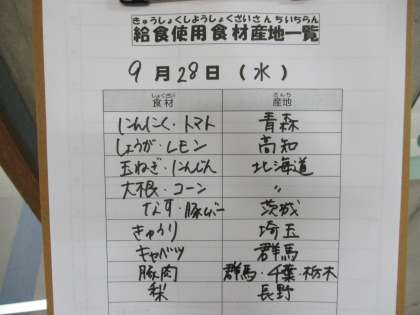 きゅうしょくしようしょくざいさんちいちらん
給食使用食材産地一覧
9月28日(水)
しょくざい さんち
食材 産地
にんにく・トマト 青森
しょうが・レモン 高知
玉ねぎ・にんじん 北海道
大根・コーン 〃
なす・豚レバー 茨城
きゅうり 埼玉
キャベツ 群馬
豚肉 群馬・千葉・栃木
梨 長野